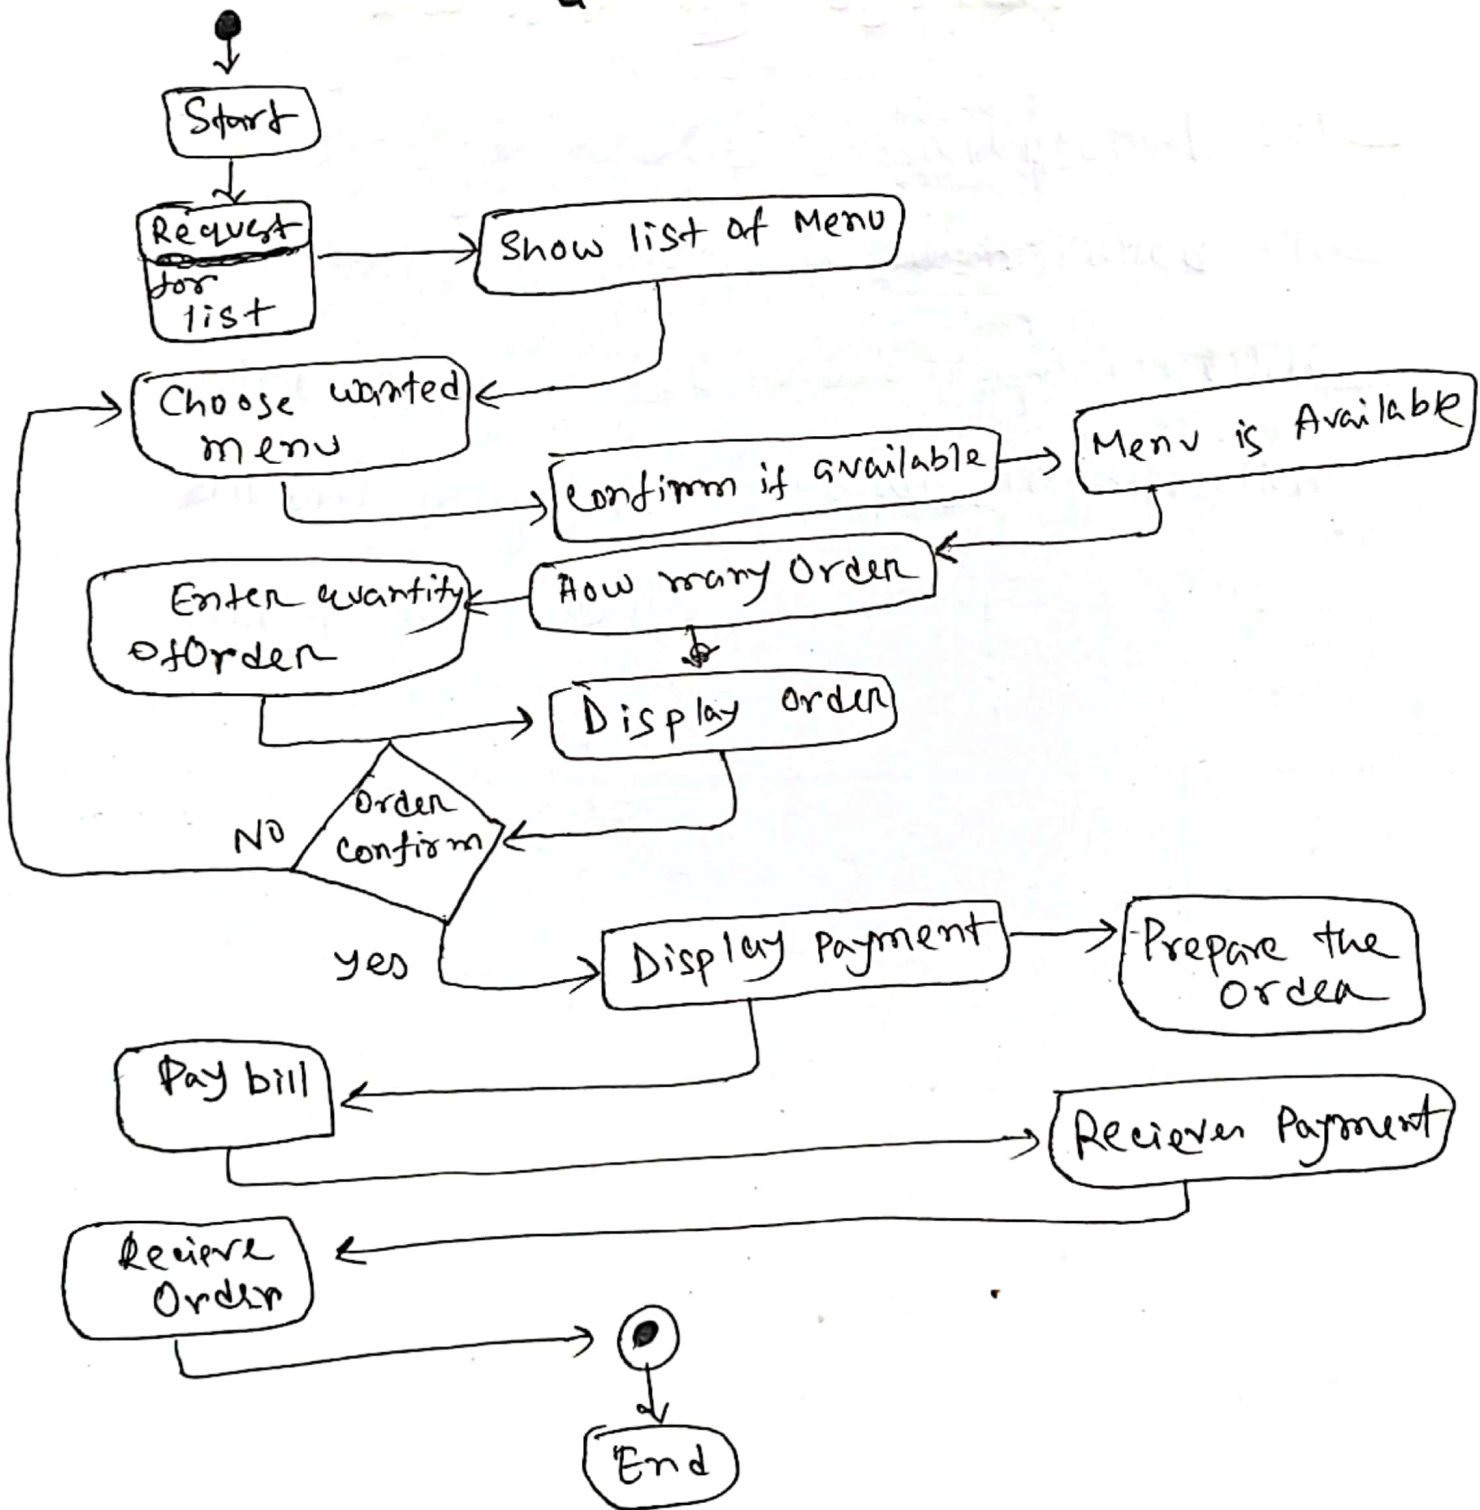 Start
Request
for
list
Show list of Menu
Choose wanted
menu
Confirm if available
Menu is Available
How many Order
Enter quantity
of Order
Display Order
Order
Confirm
NO
Yes
Display Payment
Prepare the
Order
Pay bill
Reciever Payment
Recieve
Order
End